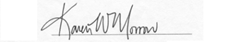 Karen W Morrow